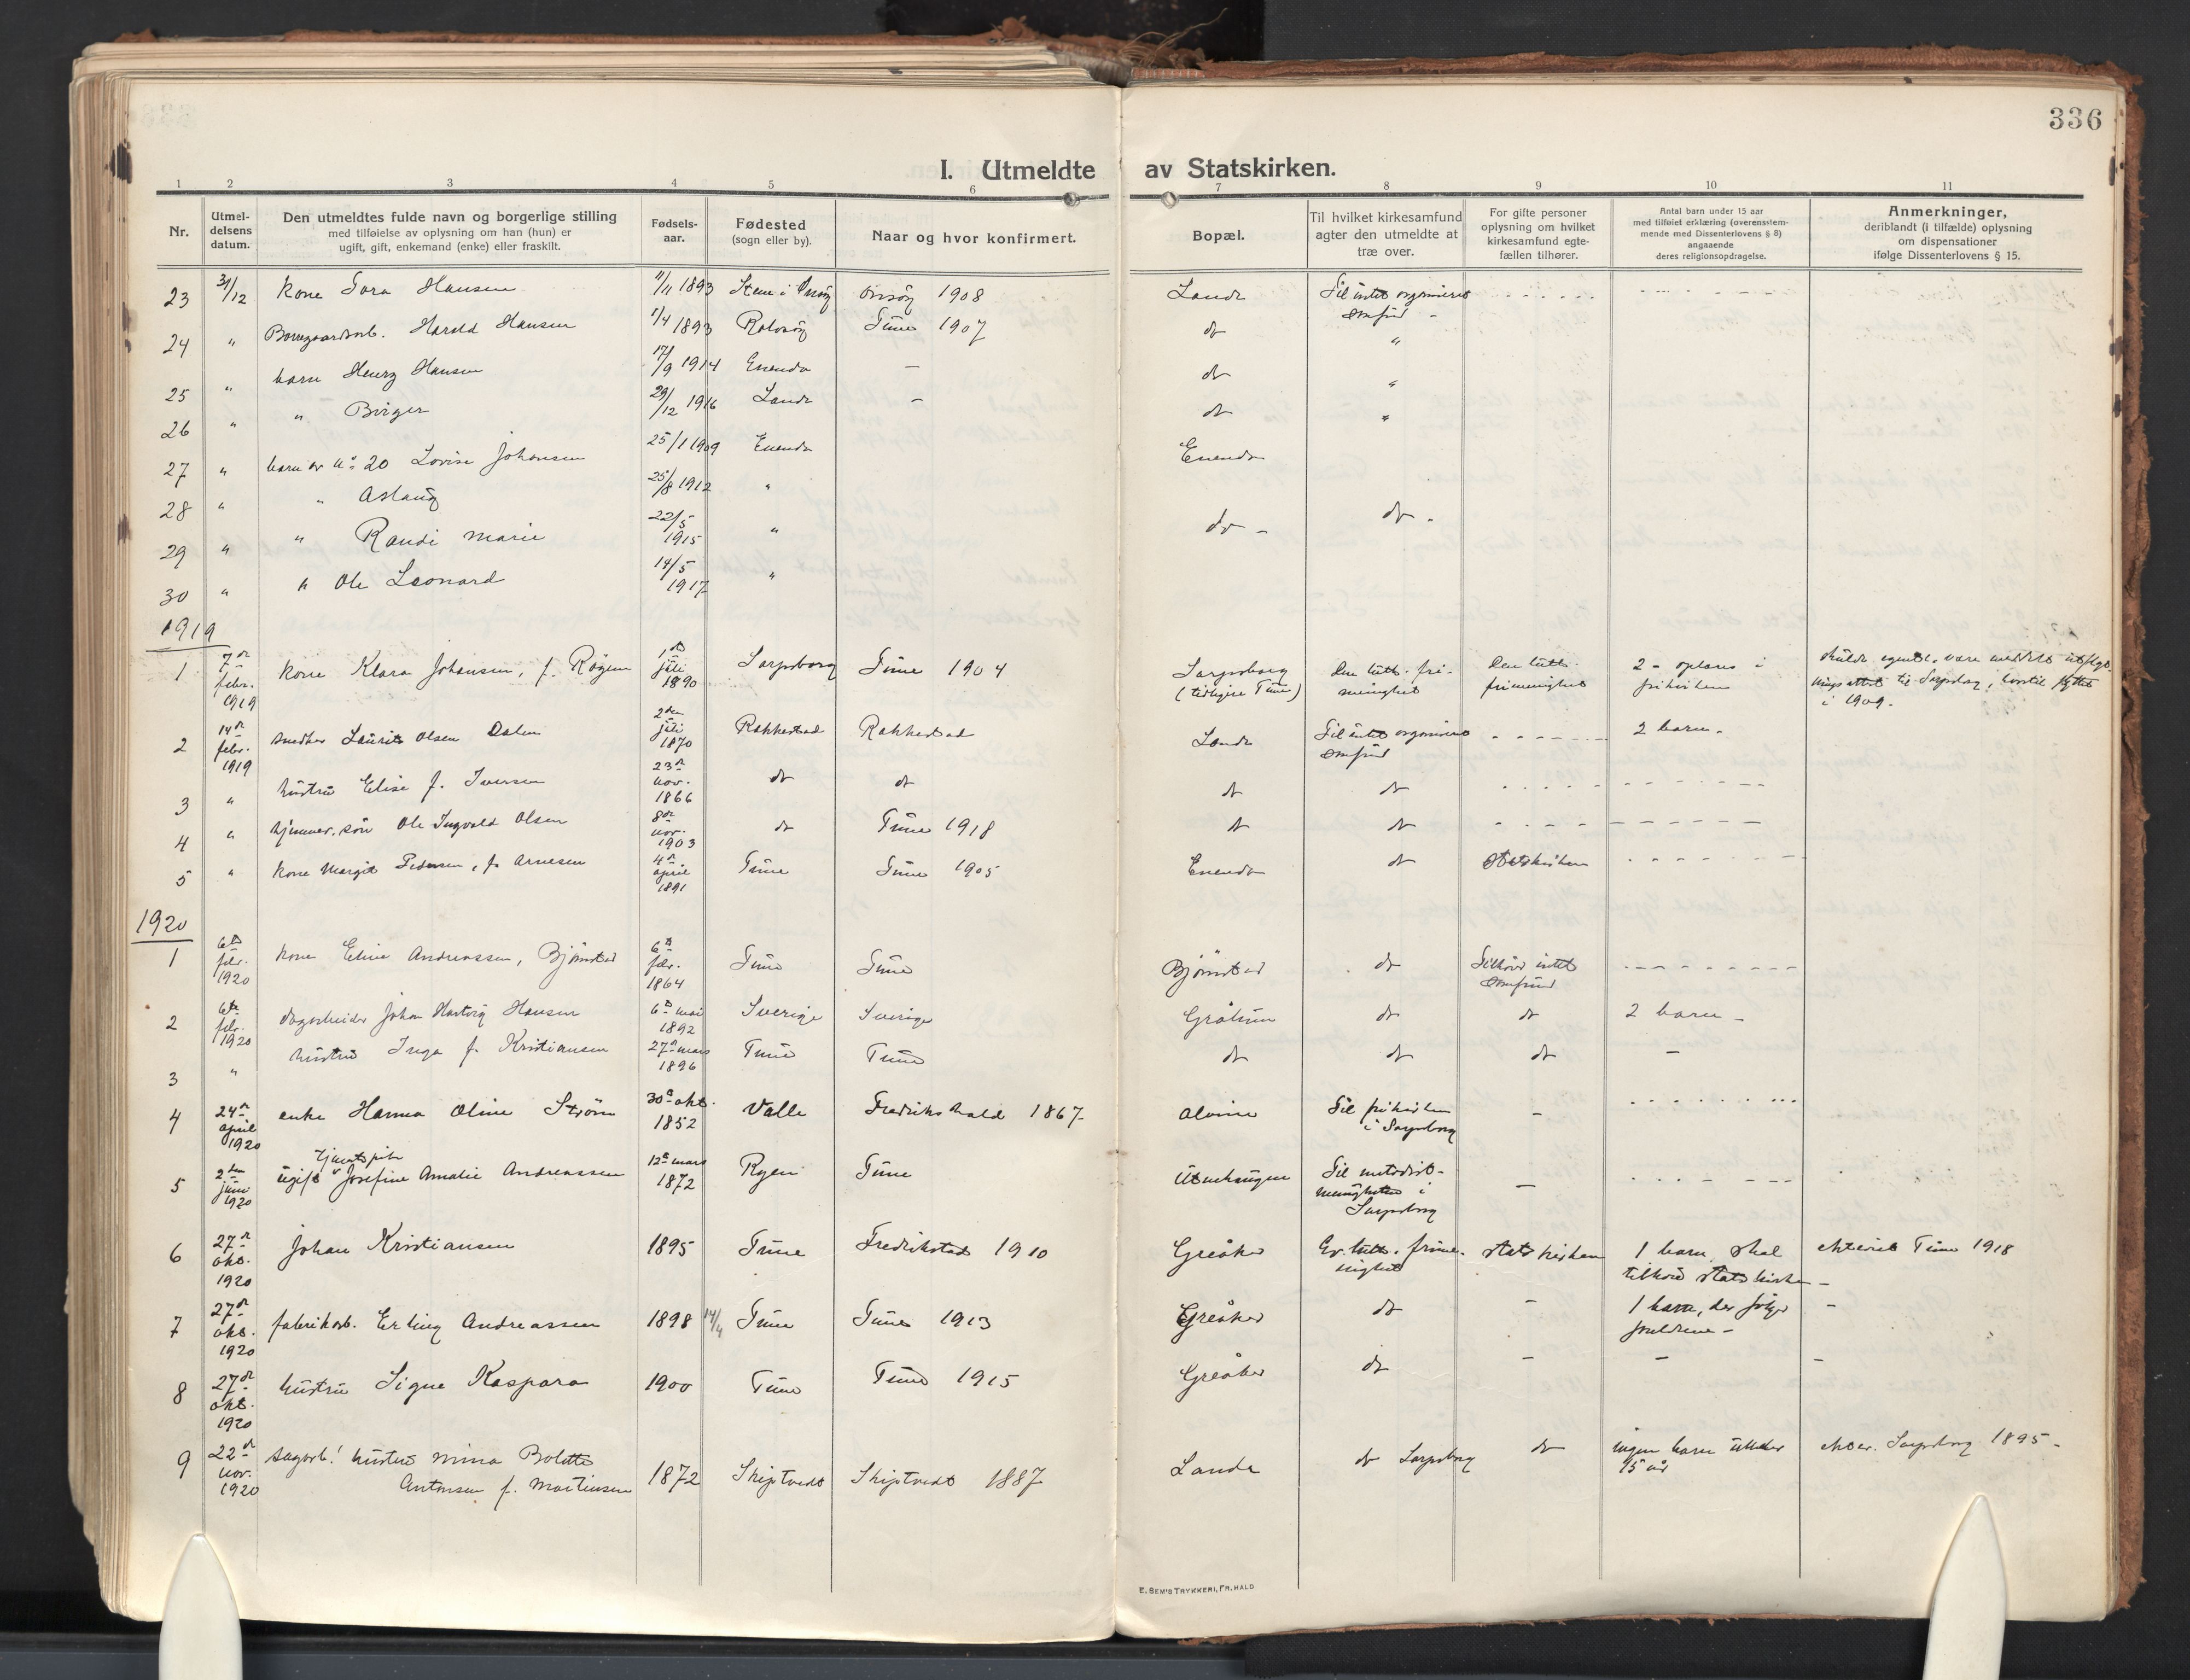 336
I. Utmeldte av Statskirken.
1 2 3 4 5 6 7 8 9 10 11
Nr.
Utmel-
delsens
datum.
Den utmeldtes fulde navn og borgerlige stilling
med tilføielse av oplysning om han (hun) er
ugift, gift, enkemand (enke) eller fraskilt.
Fødsels-
aar.
Fødested
(sogn eller by).
Naar og hvor konfirmert.
Bopæl.
Til hvilket kirkesamfund
agter den utmeldte at
træ over.
For gifte personer
oplysning om hvilket
kirkesamfund egte-
fællen tilhører.
Antal barn under 15 aar
med tilføiet erklæring (overensstem-
mende med Dissenterlovens § 8)
angaaende
deres religionsopdragelse.
Anmerkninger,
deriblandt (i tilfælde) oplysning
om dispensationer
ifølge Dissenterlovens § 15.
23 31/12 kone Hansen 1893 Onsøy 1908 Lande Til intet organiseret
samfund
24 " Borregaardsarb. Harald Hansen 1/4 1893 Rolvsøy Tune 1907 do "
25 " barn Henry Hansen 17/9 1914 Enenda — do "
26 " " Birger 29/12 1916 Lande — do "
27 " barn av nr 20 Lovise Johansen 25/1 1909 Enenda Enenda
28 " " Aslaug 25/8 1912 "
29 " " Randi Marie 22/5 1915 " do - do -
30 " " Ole Leonard 14/5 1917 "
1919
1 7de febr. 1919 kone Klara Johansen, f. 1ste juli 1890 Sarpsborg Tune 1904 Sarpsborg
(tidligere Tune) Den luth. fri-
menighet Den luth.
frimenighet 2 - opdras i
frikirken skulde egentl. være meddelt utflyt-
ningsattest til Sarpsborg, hvortil flyttet
i 1909.
2 14de febr. 1919 snedker Laurits Olsen Dalen 2den juli 1870 Rakkestad Rakkestad Lande Til intet organiseret
samfund 2 barn -
3 " hustru Elise f. Iversen 23de nov. 1866 do do do do
4 " hjemmev. søn Ole Ingvald Olsen 8de nov. 1903 do Tune 1918 do do
5 " kone Margit Pedersen, f. Arnesen 4de april 1891 Tune Tune 1905 Enenda do Statskirken
1920
1 6te febr. 1920 kone Eline Andreassen, Bjørnstad 6te febr. 1864 Tune Tune Bjørnstad do Tilhører intet
samfund
2 6te febr. 1920 dagarbeider Johan Hartvig Hansen 6te mai 1892 Sverige Sverige Grålum do do 2 barn -
3 " hustru Inga f. Kristiansen 27de mars 1896 Tune Tune do do do —
4 24de april 1920 enke Hanna Oline Strøm 30te okt. 1852 Valle Fredrikshald 1867 - Alvim Til frikirken
i Sarpsborg —
5 2den juni 1920 tjenestepike
ugift Josefine Amalie Andreassen 12te mars 1872 Rygen Tune Til metodist-
menigheten i
Sarpsborg —
6 27de okt. 1920 Johan Kristiansen 1895 Tune Fredrikstad 1910 Greåker Ev. luth. frime-
nighet statskirken 1 barn skal
tilhøre statskirken - ekteviet Tune 1918
7 27de okt. 1920 fabrikarb. Erling Andreassen 1898 14/4 Tune Tune 1913 Greåker do — 1 barn, der følger
forældrene - —
8 27de okt. 1920 hustru Signe Kaspara 1900 Tune Tune 1915 Greåker do — — —
9 22de nov. 1920 sagarb. hustru Mina Bolette
Antonsen f. Martinsen 1872 Skiptvedt Skiptvedt 1887 Lande do Sarpsborg do ingen barn under
15 år Sarpsborg 1895 -
E. SEM'S TRYKKERI, FR.HALD